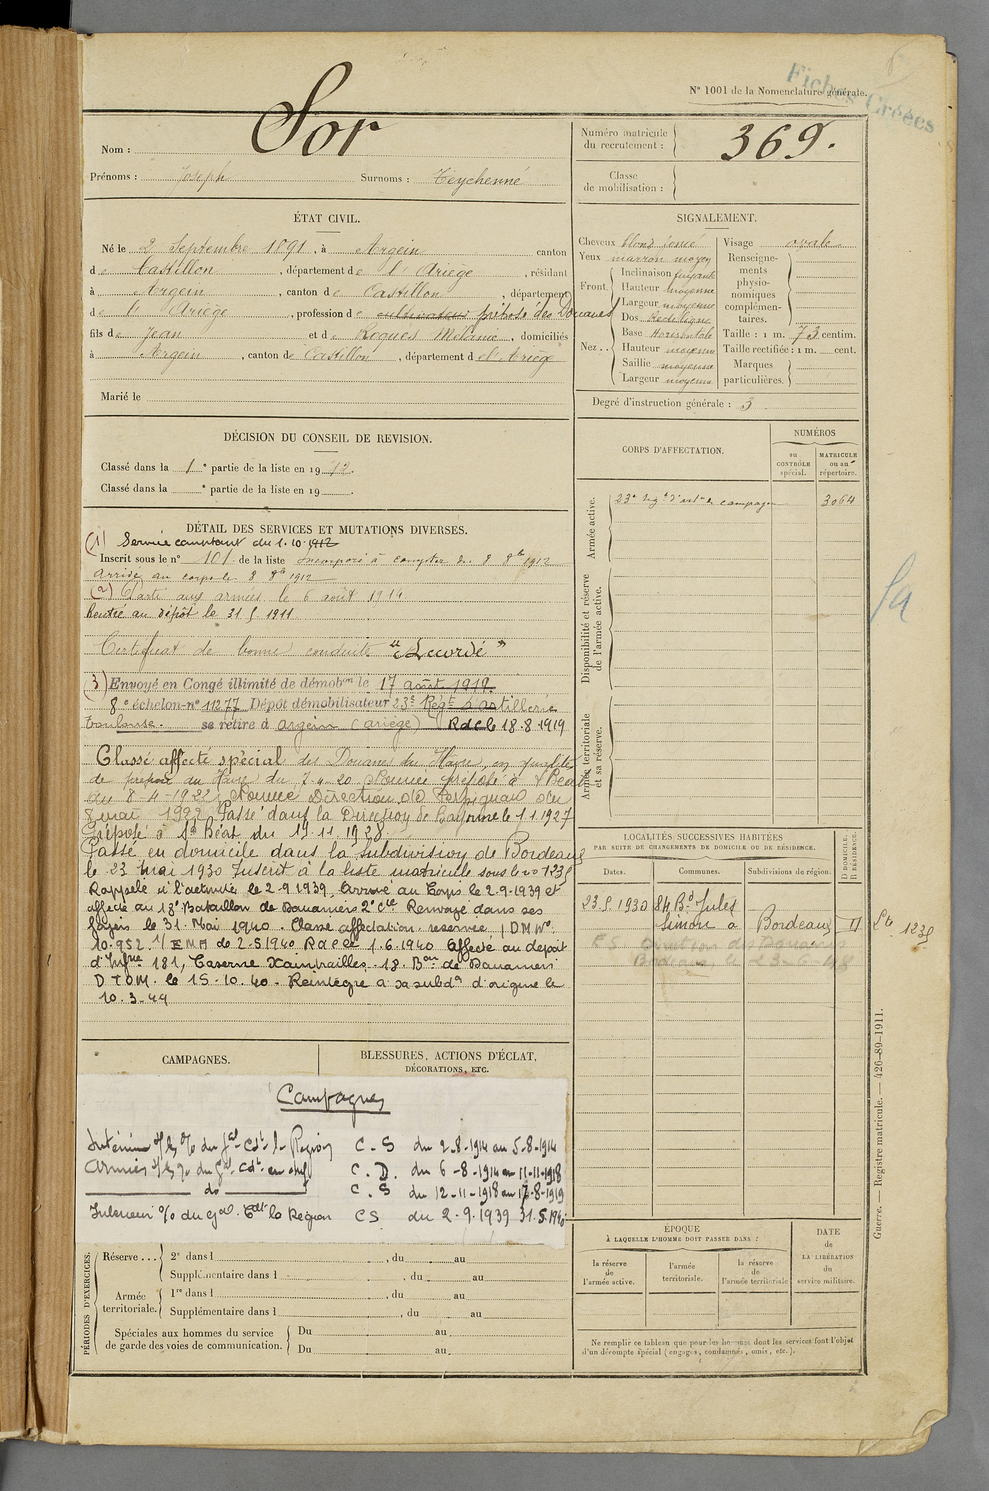 Fiches Créées
N° 1001 de la Nomenclature générale.
Nom : Sor
Prénoms : Joseph Surnoms : Teychenné
Numéro matricule du recrutement : 369.
Classe de mobilisation :
ÉTAT CIVIL.
Né le 2 Septembre 1891, à Argein canton
de Castillon, département de l'Ariège, résidant
à Argein, canton de Castillon, département
de l'Ariège, profession de cultivateur préposé des Douanes
fils de Jean et de Rogues Mélanie, domiciliés
à Argein, canton de Castillon, département de l'Ariège
Marié le
SIGNALEMENT.
Cheveux blond foncé
Yeux marron moyen
Front. Inclinaison fuyante
Hauteur moyenne
Largeur moyenne
Nez.. Dos Rectiligne
Base Horizontale
Hauteur moyenne
Saillie moyenne
Largeur moyenne
Visage ovale
Renseignements physionomiques complémentaires.
Taille : 1 m. 73 centim.
Taille rectifiée : 1 m. cent.
Marques particulières.
Degré d'instruction générale : 3
DÉCISION DU CONSEIL DE REVISION.
Classé dans la 1e partie de la liste en 1912.
Classé dans la e partie de la liste en 19 .
DÉTAIL DES SERVICES ET MUTATIONS DIVERSES.
(1) Service comptant du 1.10.1912
Inscrit sous le n° 101 de la liste Incorporé à compter du 8 8bre 1912
Arrivé au corps le 8 8bre 1912
(2) Parti aux armées le 6 août 1914
Rentré au dépôt le
Certificat de bonne conduite "Accordé"
(3) Envoyé en Congé illimité de démobon le 17 août 1919.
8e échelon n° 11277 Dépôt démobilisateur 23e Regt d'artillerie
Toulouse. se retire à Argein (Ariège) Rdclé 18.8.1919
Classé affecté spécial des Douanes du Havre, en qualité
de préposé au Havre du 7-4-20 Nommé préposé à St Béat
du 8-4-1922, Nommé Direction de Perpignan du
8 mai 1922, Passé dans la Direction de Bayonne le 1.1.1927
Préposé à St Béat du 19.11.1928.
Passé en domicile dans la subdivision de Bordeaux
le 23 mai 1930 Inscrit à la liste matricule sous le n° 1235
Rappelé à l'activité le 2-9-1939, Arrivé au Corps le 2-9-1939 et
affecté au 18e Bataillon de Douaniers 2e Cie Renvoyé dans ses
foyers le 31 Mai 1940. Classe affectation reserve / D M No
10.952 1/EMA de 2-5-1940 Rdclé 1.6.1940 Affecté au depot
d'Infrie 181, Caserne Xaintrailles. 18. Bon de Douaniers
D.T.O.M. le 15-10.40 - Réintegre a sa subdon d'origine le
10.3-44
CORPS D'AFFECTATION.
NUMÉROS
au CONTRÔLE spécial.
MATRICULE ou au répertoire.
Armée active.
23e Regt d'artie de campagne 3064
Disponibilité et réserve de l'armée active.
Armée territoriale et sa réserve.
Sa
LOCALITÉS SUCCESSIVES HABITÉES
PAR SUITE DE CHANGEMENTS DE DOMICILE OU DE RÉSIDENCE.
Dates. Communes. Subdivisions de région. D DOMICILE. R RÉSIDENCE.
23.5.1930 84 Bd Jules
Simon à Bordeaux D 1235
Direction des Douanes
Bordeaux, le 23-6-48
CAMPAGNES.
BLESSURES, ACTIONS D'ÉCLAT, DÉCORATIONS, ETC.
Campagnes
Intérieur s/les o/o du Gal Cdt la Région C.S du 2-8-1914 au 5-8-1914
Armées s/les o/o du Gal Cdt en chef C.D. du 6-8-1914 au 11-11-1918
do C.S du 12-11-1918 au 17-8-1919
Intérieur o/o du Gal Cdt la Région CS du 2-9-1939 31.5.1940
PÉRIODES D'EXERCICES.
Réserve... 2e dans l , du au
Supplémentaire dans l , du au
Armée territoriale. 1re dans l , du au
Supplémentaire dans l , du au
Spéciales aux hommes du service de garde des voies de communication. Du au.
Du au.
ÉPOQUE
À LAQUELLE L'HOMME DOIT PASSER DANS :
la réserve de l'armée active.
l'armée territoriale.
la réserve de l'armée territoriale
DATE de LA LIBÉRATION du service militaire.
Ne remplir ce tableau que pour les hommes dont les services font l'objet
d'un décompte spécial (engagés, condamnés, omis, etc.).
Guerre. — Registre matricule. — 426-89-1911.